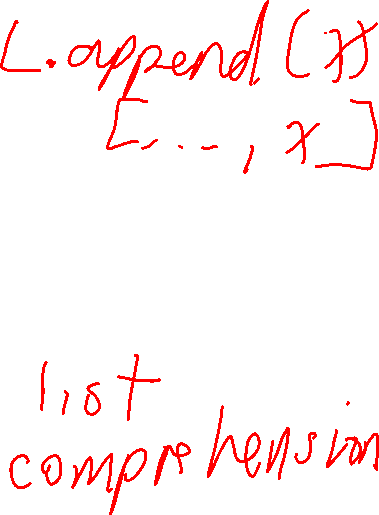 L.append(x)
[..., x]
list
comprehension